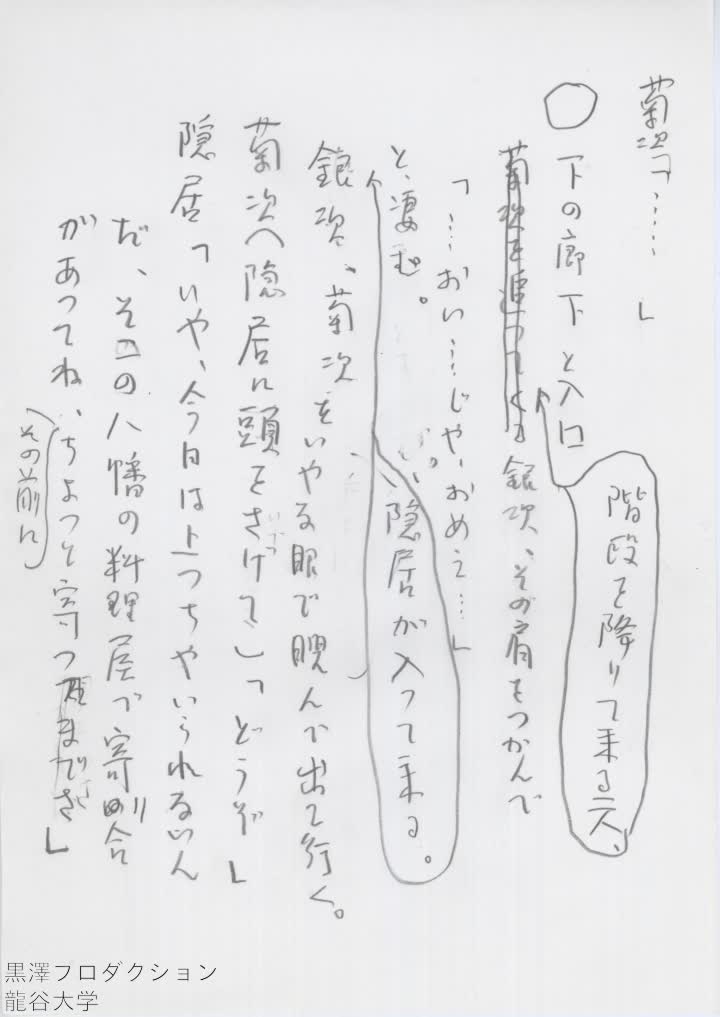 菊次「……　　」
○ 下の廊下と入口
階段を降りて来る二人、
菊次を追って来る銀次、その肩をつかんで
「……おい……じゃ、おめえ……」
と、凄む。
隠居が入って来る。
銀次、菊次をいやな眼で睨んで出て行く。
菊次へ隠居に頭をさげて」「どうぞ」
隠居「いや、今日は上っちゃいられないん
だ、そこの八幡の料理屋で寄り合
があってね、ちょっと寄っ
まださ」
その前に
黒澤プロダクション
龍谷大学